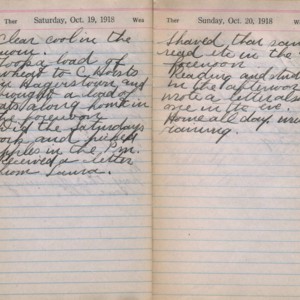 Ther Saturday, Oct. 19, 1918 Wea
Clear cool in the
morn.
Took a load of
wheat to C
in Hagerstown and
brought a load of
oats along home in
the forenoon
Did the Saturdays
work and picked
apples in the P.m.
Received a letter
from Laura.
Ther Sunday, Oct. 20, 1918 Wea
Shaved that
read etc in the
forenoon
Reading and
in the afternoon
wrote a letter also
one in the eve.
Home all day